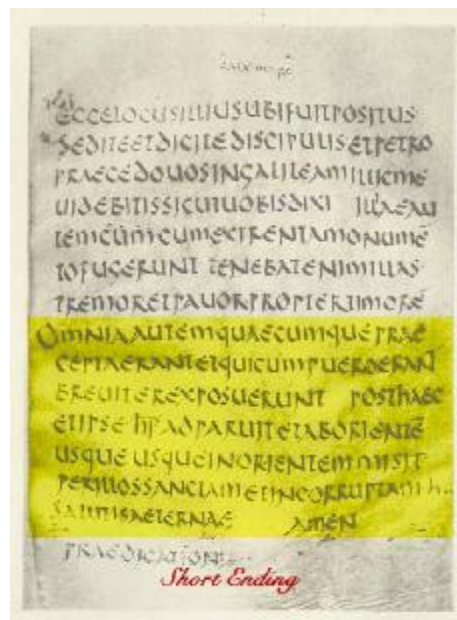 ECCELOCUSILLIUSUBIFUITPOSITUS
SEDITEETDICITEDISCIPULISETPETRO
PRAECEDOUOSINGALILEAMILLICME
UIDEBITISSICUTUOBISDIXI ILLAEAU
TEMCUMCUMEXIRENTAMONUMĒ
TOFUGERUNT TENEBATENIMILLAS
TREMORETPAUORPROPTERTIMORĒ
OMNIAAUTEMQUAECUMQUEPRAE
CEPTAERANTETQUICUMPUEROERANT
BREUITEREXPOSUERUNT POSTHAEC
ETIPSE ADPARUITETABORIENTĒ
USQUEUSQUEINORIENTEM MISIT
PERILLOSSANCTAMETINCORRUPTAM
SALUTISAETERNAE AMEN
Short Ending